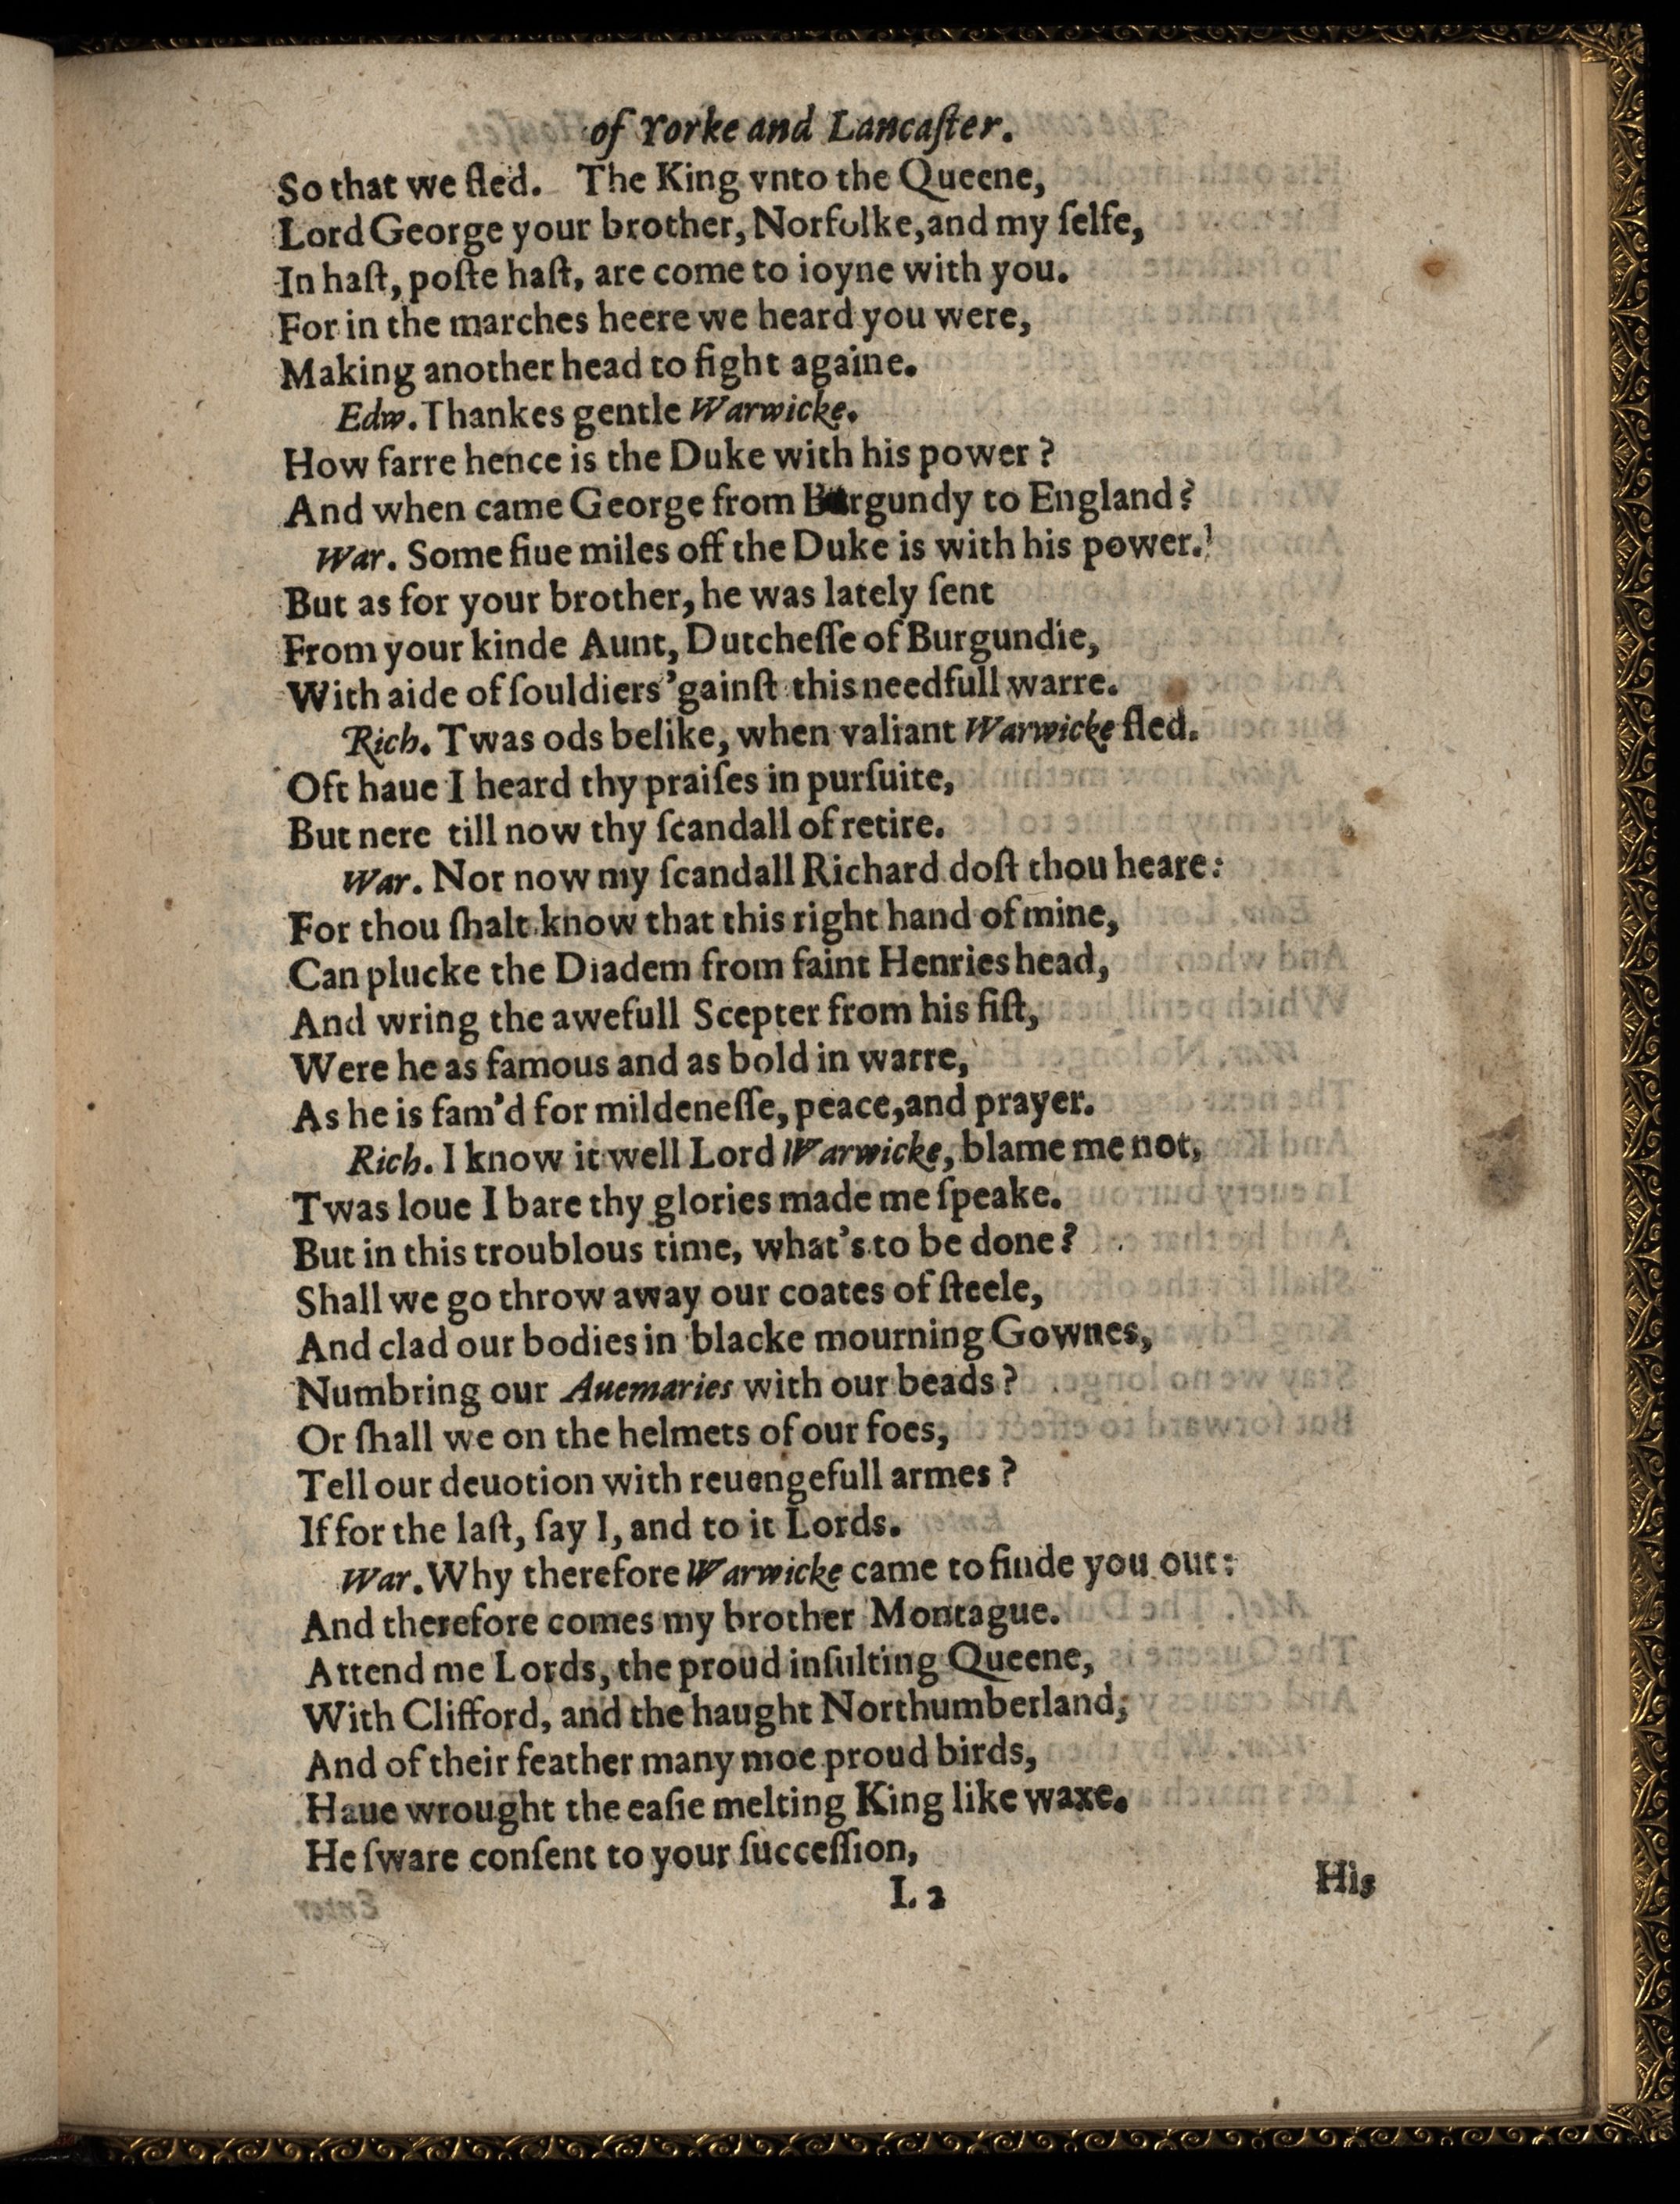 of Yorke and Lancaſter.
So that we fled. The King vnto the Queene,
Lord George your brother, Norfolke, and my ſelfe,
In haſt, poſte haſt, are come to ioyne with you.
For in the marches heere we heard you were,
Making another head to fight againe.
Edw. Thankes gentle Warwicke.
How farre hence is the Duke with his power?
And when came George from Burgundy to England?
War. Some fiue miles off the Duke is with his power.
But as for your brother, he was lately ſent
From your kinde Aunt, Dutcheſſe of Burgundie,
With aide of ſouldiers 'gainſt this needfull warre.
Rich. Twas ods belike, when valiant Warwicke fled.
Oft haue I heard thy praiſes in purſuite,
But nere till now thy ſcandall of retire.
War. Nor now my ſcandall Richard doſt thou heare:
For thou ſhalt know that this right hand of mine,
Can plucke the Diadem from faint Henries head,
And wring the awefull Scepter from his fiſt,
Were he as famous and as bold in warre,
As he is fam'd for mildeneſſe, peace, and prayer.
Rich. I know it well Lord Warwicke, blame me not,
Twas loue I bare thy glories made me ſpeake.
But in this troublous time, what's to be done?
Shall we go throw away our coates of ſteele,
And clad our bodies in blacke mourning Gownes,
Numbring our Auemaries with our beads?
Or ſhall we on the helmets of our foes,
Tell our deuotion with reuengefull armes?
If for the laſt, ſay I, and to it Lords.
War. Why therefore Warwicke came to finde you out:
And therefore comes my brother Montague.
Attend me Lords, the proud inſulting Queene,
With Clifford, and the haught Northumberland,
And of their feather many moe proud birds,
Haue wrought the eaſie melting King like waxe.
He ſware conſent to your ſucceſſion,
I. 2
His